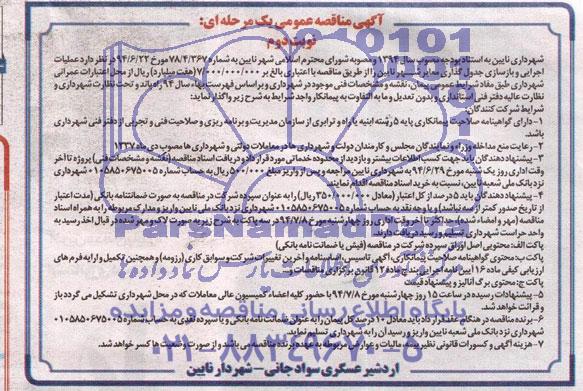 آگهی مناقصه عمومی یک مرحله ای:
نوبت دوم
شهرداری نایین به استناد بودجه مصوب سال ۱۳۹۴ و مصوبه شورای محترم اسلامی شهر نایین به شماره ۷۸/۴/۳۶۷ مورخ ۹۴/۶/۲۲ در نظر دارد عملیات
اجرایی و بازسازی جدول گذاری معابر شهر نایین را از طریق مناقصه با اعتباری بالغ بر ۷/۰۰۰/۰۰۰/۰۰۰ (هفت میلیارد) ریال از محل اعتبارات عمرانی
شهرداری طبق مفاد شرایط عمومی پیمان، نقشه و مشخصات فنی موجود در شهرداری و براساس فهرست بهاء سال ۹۴ راه باند و تحت نظارت شهرداری و
نظارت عالیه دفتر فنی استانداری و بدون تعدیل و ما به التفاوت به پیمانکار واجد شرایط به شرح زیر واگذار نماید:
شرایط شرکت کنندگان:
۱- دارای گواهینامه صلاحیت پیمانکاری پایه ۵ رشته ابنیه یا راه و ترابری از سازمان مدیریت و برنامه ریزی و صلاحیت فنی و تجربی از دفتر فنی شهرداری
باشد.
۲- رعایت منع مداخله وزراء و نمایندگان مجلس و کارمندان دولت و شهرداری ها در معاملات دولتی و شهرداری ها مصوب دی ماه ۱۳۳۷
۳- پیشنهاد دهندگان باید جهت کسب اطلاعات بیشتر و بازدید از محدوده خدماتی مورد قرارداد و دریافت اسناد مناقصه (نقشه و مشخصات فنی) پروژه تا آخر
وقت اداری روز یک شنبه مورخ ۹۴/۶/۲۹ به شهرداری نایین مراجعه و پس از واریز مبلغ ۵۰۰/۰۰۰ ریال به حساب شماره ۰۱۰۵۸۵۰۶۷۵۰۰۵ شهرداری
نزد بانک ملی شعبه نایین، نسبت به خرید اسناد مناقصه اقدام نمایند.
۴- پیشنهاد دهندگان باید ۵ درصد از کل اعتبار (معادل ۳۵۰/۰۰۰/۰۰۰ ریال) را به عنوان سپرده شرکت در مناقصه به صورت ضمانتنامه بانکی (مدت اعتبار
از تاریخ صدور کمتر از سه ماه نباشد) و یا وجه نقد به حساب شماره ۰۱۰۵۸۵۰۶۷۵۰۰۵ شهرداری نزد بانک ملی نایین واریز و مدارک مربوطه را به همراه اسناد
مناقصه (مهر و امضاء شده)، حداکثر تا آخر وقت اداری روز چهارشنبه مورخ ۹۴/۷/۸ در سه پاکت به شرح زیر به صورت لاک و مهر شده در قبال اخذ رسید به
واحد حراست شهرداری تسلیم و رسید دریافت دارند.
پاکت الف: محتوی اصل اوراق سپرده شرکت در مناقصه (فیش یا ضمانت نامه بانکی)
پاکت ب: محتوی گواهینامه صلاحیت پیمانکاری، آگهی تاسیس، اساسنامه و آخرین تغییرات شرکت و سوابق کاری (رزومه) و همچنین تکمیل و ارایه فرم های
ارزیابی کیفی ماده ۱۶ آیین نامه اجرایی بند ج ماده ۱۲ قانون برگزاری مناقصات و...
پاکت ج: محتوی برگ آنالیز و پیشنهاد قیمت
۵- پیشنهادات رسیده در ساعت ۱۵ روز چهار شنبه مورخ ۹۴/۷/۸ با حضور کلیه اعضاء کمیسیون عالی معاملات که در محل شهرداری تشکیل می گردد باز
و قرائت خواهد شد.
۶- برنده مناقصه در هنگام عقد قرارداد باید معادل ۱۰ درصد کل پیمان را به عنوان ضمانت نامه بانکی و یا سپرده نقدی به حساب شماره ۰۱۰۵۸۵۰۶۷۵۰۰۵
شهرداری نزد بانک ملی شعبه نایین واریز و رسید آن را به شهرداری تسلیم نماید.
۷- هزینه آگهی و کسورات قانونی نظیر بیمه، مالیات و عوارض مربوطه به عهده برنده مناقصه می باشد و از صورت وضعیت ها کسر خواهد شد.
اردشیر عسگری سوادجانی - شهردار نایین
ParsNamadData
پایگاه اطلاع رسانی مناقصه و مزایده
۰۲۱-۸۸۳۴۹۶۷۰-۵